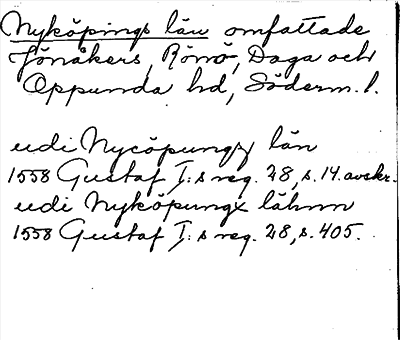 Nyköpings län omfattade
Jönåkers, Rönö, Daga och
Oppunda hd, Söderm. l.
udi Nycöpungx län
1558 Gustaf I:s reg. 28, s. 14. avskr.
udi Nyköpungx lähnn
1558 Gustaf I:s reg. 28, s. 405.